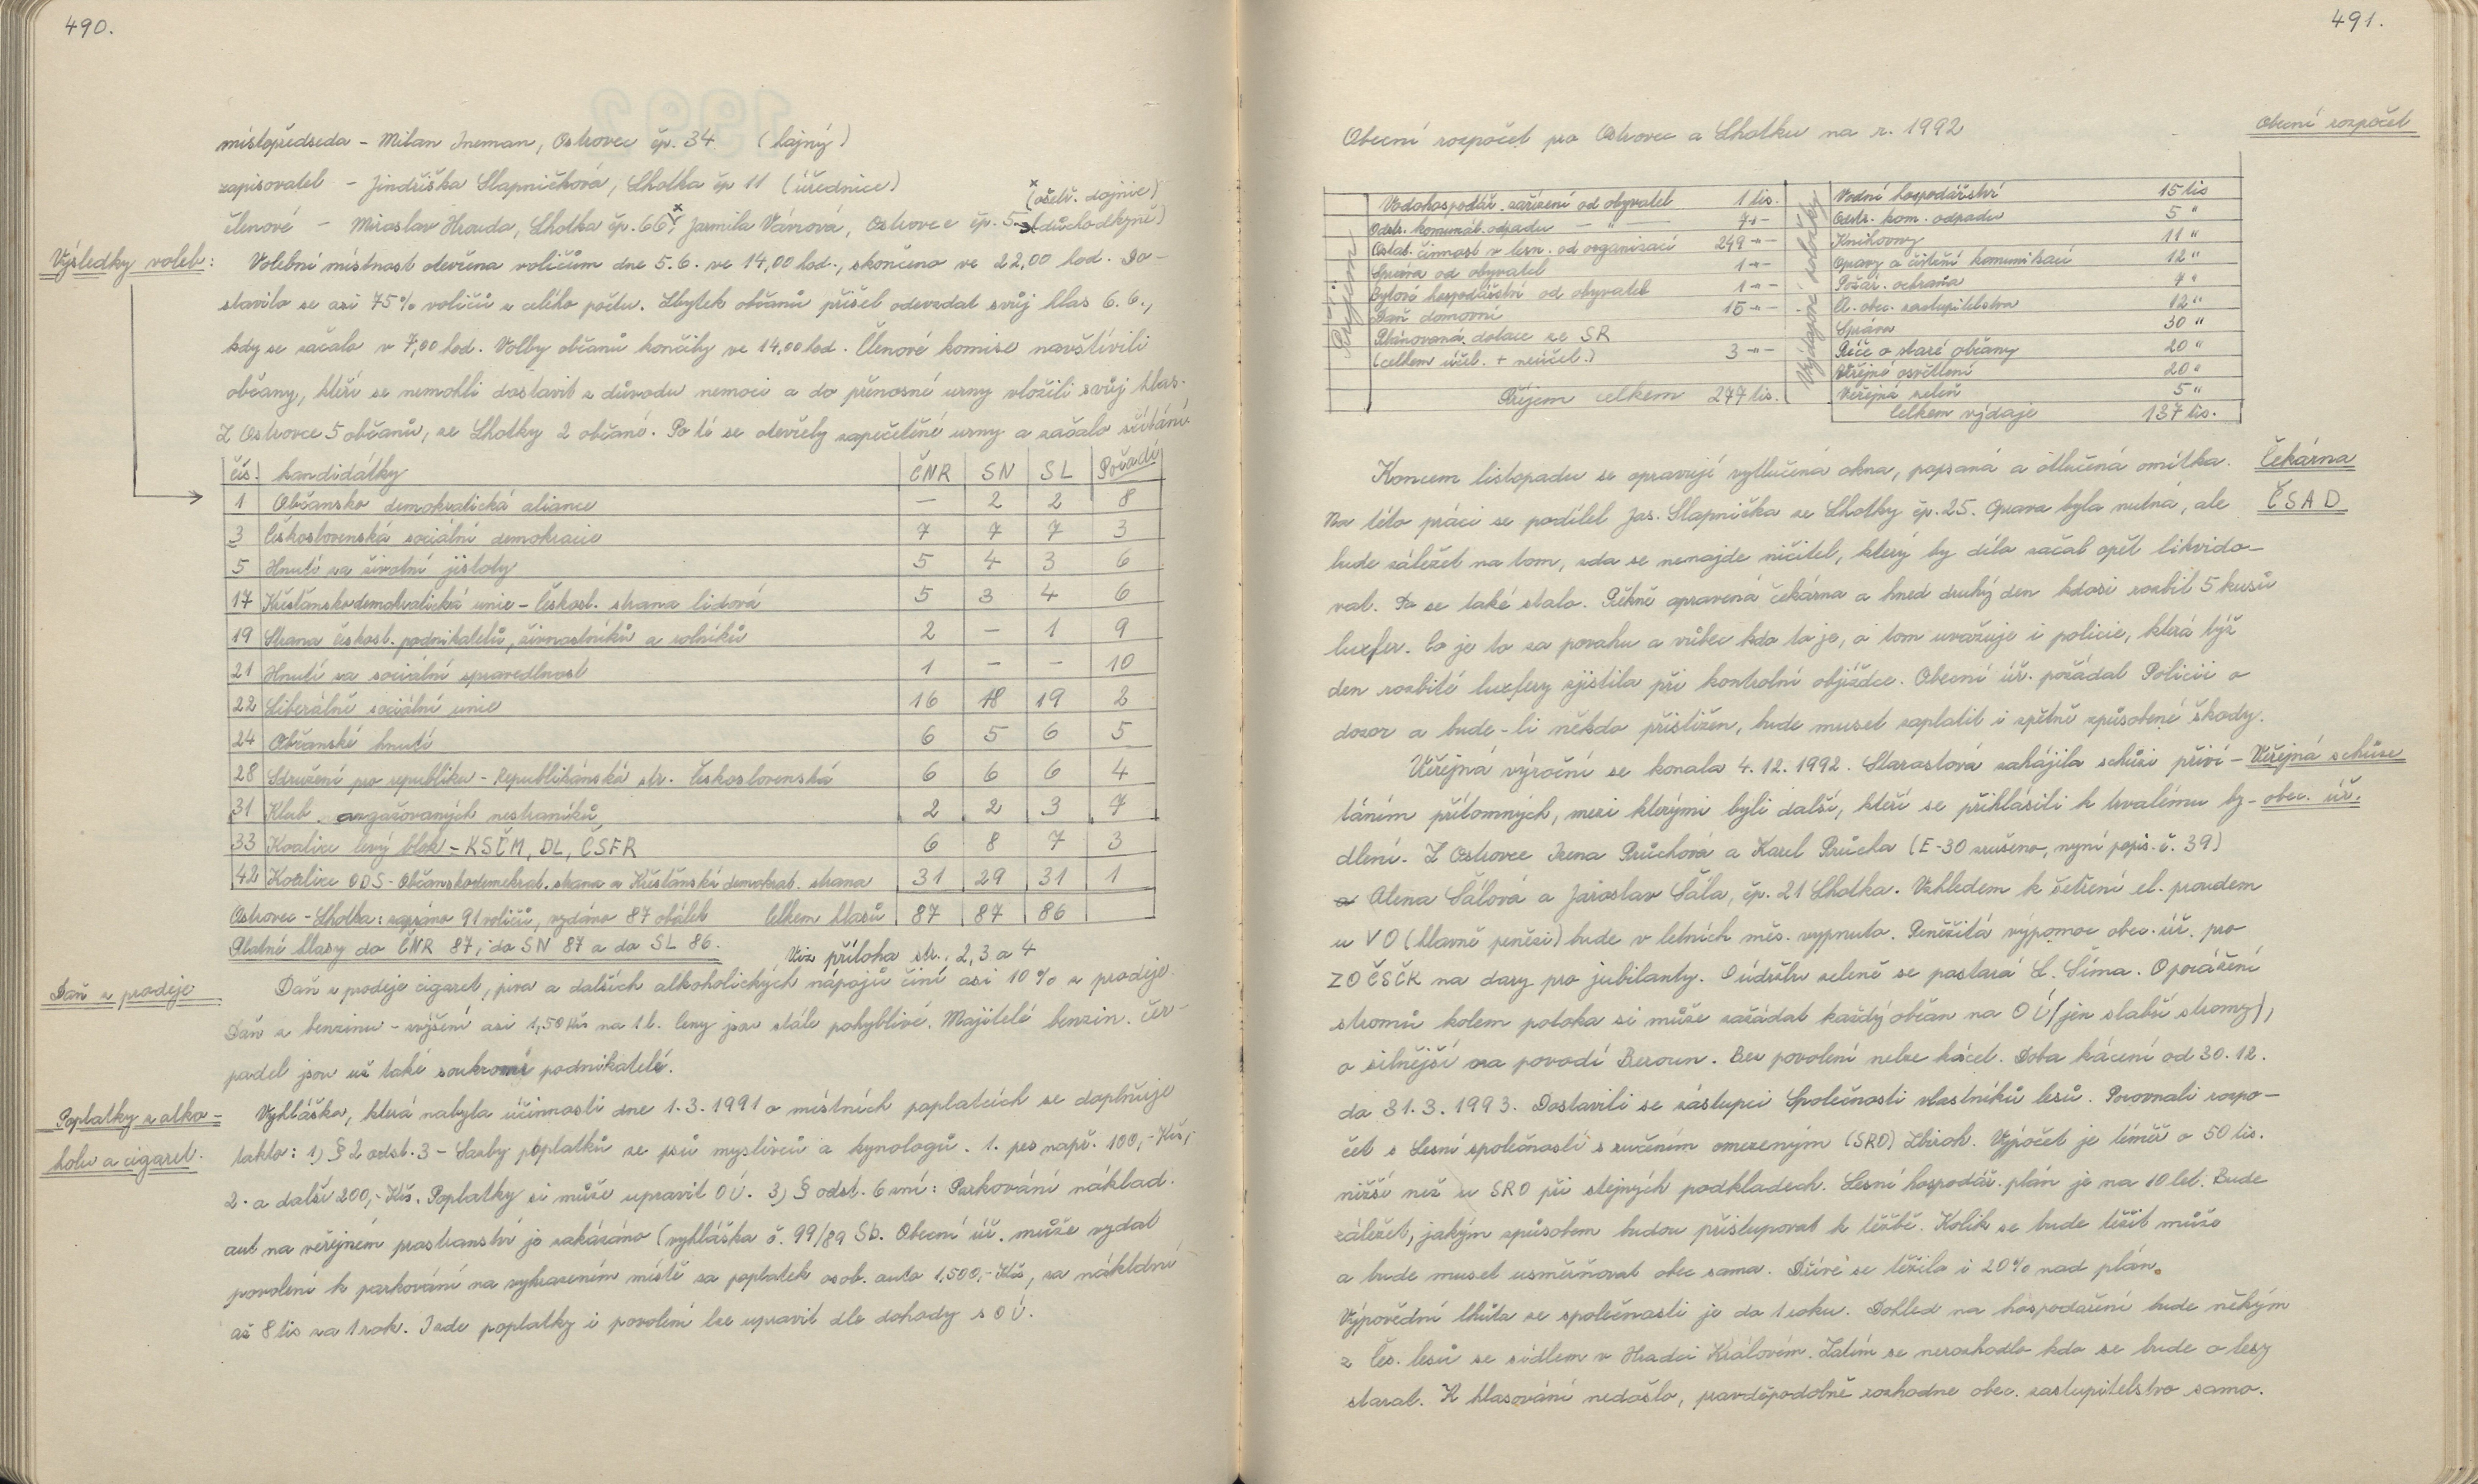 490.
místopředseda - Milan Ineman, Ostrovec čp. 34 (hajný)
zapisovatel - Jindřiška Slapničková, Lhotka čp 11 (úřednice)
x (ošetř. dojnic)
členové - Miroslav Hrouda, Lhotka čp. 66, x Jarmila Vánová, Ostrovec čp. 5 (důchodkyně)
Výsledky voleb:
Volební místnost otevřena voličům dne 5.6. ve 14,00 hod., skončeno ve 22,00 hod. Do-
stavilo se asi 75% voličů z celého počtu. Zbytek občanů přišel odevzdat svůj hlas 6.6.,
kdy se začalo v 7,00 hod. Volby občanů končily ve 14,00 hod. Členové komise navštívili
občany, kteří se nemohli dostavit z důvodu nemoci a do přenosné urny vložili svůj hlas.
Z Ostrovce 5 občanů, ze Lhotky 2 občané. Po té se otevřely zapečetěné urny a začalo sčítání.
čís. kandidátky ČNR SN SL Pořadí
1 Občansko demokratická aliance — 2 2 8
3 Československá sociální demokracie 7 7 7 3
5 Hnutí za životní jistoty 5 4 3 6
17 Křesťanskodemokratická unie - Českosl. strana lidová 5 3 4 6
19 Strana českosl. podnikatelů, živnostníků a rolníků 2 — 1 9
21 Hnutí za sociální spravedlnost 1 — — 10
22 Liberálně sociální unie 16 18 19 2
24 Občanské hnutí 6 5 6 5
28 Sdružení pro republiku - Republikánská str. Československá 6 6 6 4
31 Klub angažovaných nestraníků 2 2 3 7
33 Koalice levý blok - KSČM, DL, ČSFR 6 8 7 3
42 Koalice ODS - Občanskodemokrat. strana a Křesťanská demokrat. strana 31 29 31 1
Ostrovec - Lhotka: zapsáno 91 voličů, vydáno 87 obálek Celkem hlasů 87 87 86
Platné hlasy do ČNR 87, do SN 87 a do SL 86.
Viz příloha str. 2, 3 a 4
Daň z prodeje
Daň z prodeje cigaret, piva a dalších alkoholických nápojů činí asi 10% z prodeje.
Daň z benzinu - zvýšení asi 1,50 Kčs na 1 l. Ceny jsou stále pohyblivé. Majitelé benzin. čer-
padel jsou už také soukromí podnikatelé.
Poplatky z alko-
holu a cigaret.
Vyhláška, která nabyla účinnosti dne 1.3.1991 o místních poplatcích se doplňuje
takto: 1) § 2 odst. 3 - Sazby poplatků ze psů myslivců a kynologů. 1. pes např. 100,- Kčs,
2. a další 200,- Kčs. Poplatky si může upravit OÚ. 3) § odst. 6 zní: Parkování náklad.
aut na veřejném prostranství je zakázáno (vyhláška č. 99/89 Sb. Obecní úř. může vydat
povolení k parkování na vyhrazeném místě za poplatek osob. auto 1.500,- Kčs, za nákladní
až 8 tis za 1 rok. I zde poplatky i povolení lze upravit dle dohody s OÚ.
491.
Obecní rozpočet pro Ostrovec a Lhotku na r. 1992
Obecní rozpočet
Příjem
Vodohospodář. zařízení od obyvatel 1 tis.
Odstr. komunál. odpadu — " — 7 -"-
Ostat. činnost v lesn. od organizací 249 -"-
Správa od obyvatel 1 -"-
Bytové hospodářství od obyvatel 1 -"-
Daň domovní 15 -"-
Plánovaná dotace ze SR
(celkem účel. + neúčel.) 3 -"-
Příjem celkem 277 tis.
Výdajové položky
Vodní hospodářství 15 tis
Odstr. kom. odpadu 5 "
Knihovny 11 "
Opravy a čištění komunikací 12 "
Požár. ochrana 7 "
Čl. obec. zastupitelstva 12 "
Správa 30 "
Péče o staré občany 20 "
Veřejné osvětlení 20 "
Veřejná zeleň 5 "
Celkem výdaje 137 tis.
Čekárna
ČSAD
Koncem listopadu se opravují vytlučená okna, popsaná a otlučená omítka.
Na této práci se podílel Jos. Slapnička ze Lhotky čp. 25. Oprava byla nutná, ale
bude záležet na tom, zda se nenajde ničitel, který by dílo začal opět likvido-
vat. To se také stalo. Pěkně opravená čekárna a hned druhý den kdosi rozbil 5 kusů
luxfer. Co je to za povahu a vůbec kdo to je, o tom uvažuje i policie, která týž
den rozbité luxfery zjistila při kontrolní objížďce. Obecní úř. požádal Policii o
dozor a bude-li někdo přistižen, bude muset zaplatit i zpětně způsobené škody.
Veřejná schůze
obec. úř.
Veřejná výroční se konala 4.12.1992. Starostová zahájila schůzi přiví-
táním přítomných, mezi kterými byli další, kteří se přihlásili k trvalému by-
dlení. Z Ostrovce Irena Průchová a Karel Průcha (E-30 zrušeno, nyní popis. č. 39)
a Alena Sálová a Jaroslav Sála, čp. 21 Lhotka. Vzhledem k šetření el. proudem
u VO (hlavně peněz) bude v letních měs. vypnuto. Peněžitá výpomoc obec. úř. pro
ZO ČSČK na dary pro jubilanty. O údržbu zeleně se postará L. Šíma. O porážení
stromů kolem potoka si může zažádat každý občan na OÚ (jen slabší stromy),
o silnější na povodí Beroun. Bez povolení nelze kácet. Doba kácení od 30.12.
do 31.3.1993. Dostavili se zástupci Společnosti vlastníků lesů. Porovnali rozpo-
čet s Lesní společností s ručením omezeným (SRO) Zbiroh. Výpočet je téměř o 50 tis.
nižší než u SRO při stejných podkladech. Lesní hospodář. plán je na 10 let. Bude
záležet, jakým způsobem budou přistupovat k těžbě. Kolik se bude těžit může
a bude muset usměrňovat obec sama. Dříve se těžilo i 20% nad plán.
Výpovědní lhůta ze společnosti je do 1 roku. Dohled na hospodaření bude někým
z Čes. lesů se sídlem v Hradci Královém. Zatím se nerozhodlo kdo se bude o lesy
starat. K hlasování nedošlo, pravděpodobně rozhodne obec. zastupitelstvo samo.